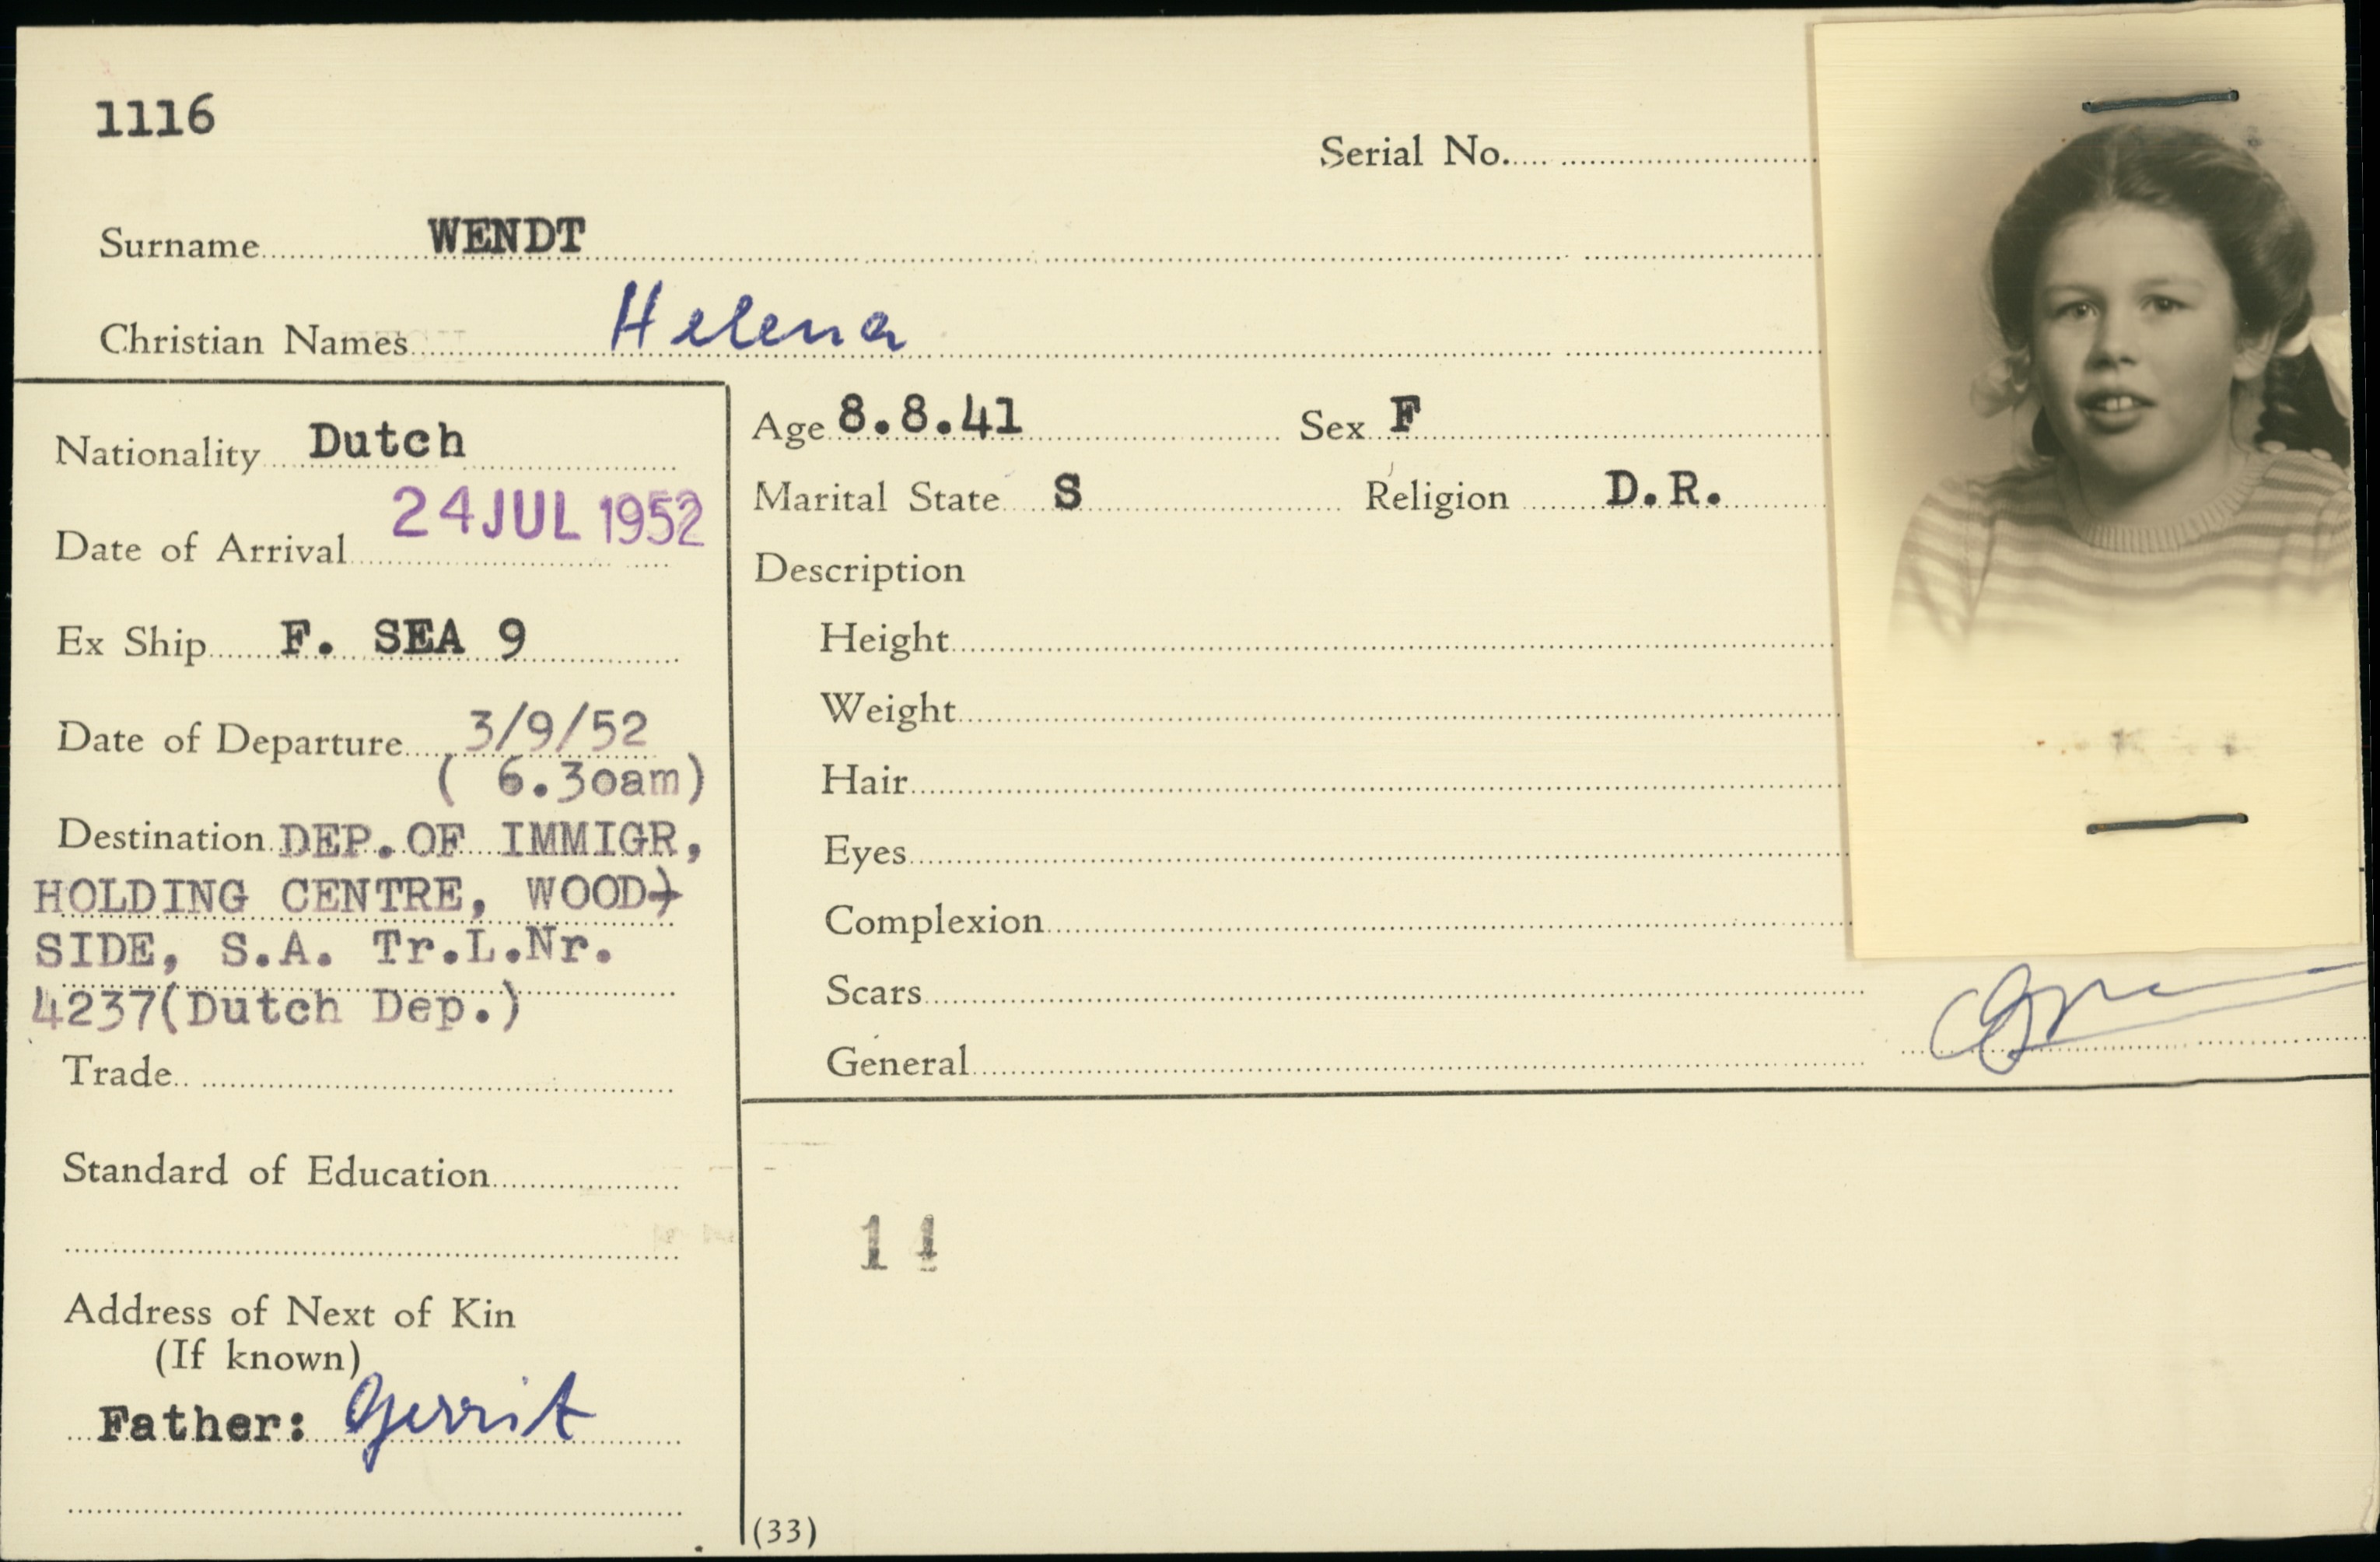 1116
Serial No.
Surname WENDT
Christian Names Helena
Nationality Dutch
Date of Arrival 24 JUL 1952
Ex Ship F. SEA 9
Date of Departure 3/9/52
( 6.30am)
Destination DEP.OF IMMIGR,
HOLDING CENTRE, WOOD)
SIDE, S.A. Tr.L.Nr.
4237(Dutch Dep.)
Trade
Standard of Education
Address of Next of Kin
(If known)
Father: Gerrit
Age 8.8.41 Sex F
Marital State S Religion D.R.
Description
Height
Weight
Hair
Eyes
Complexion
Scars
General
(33)